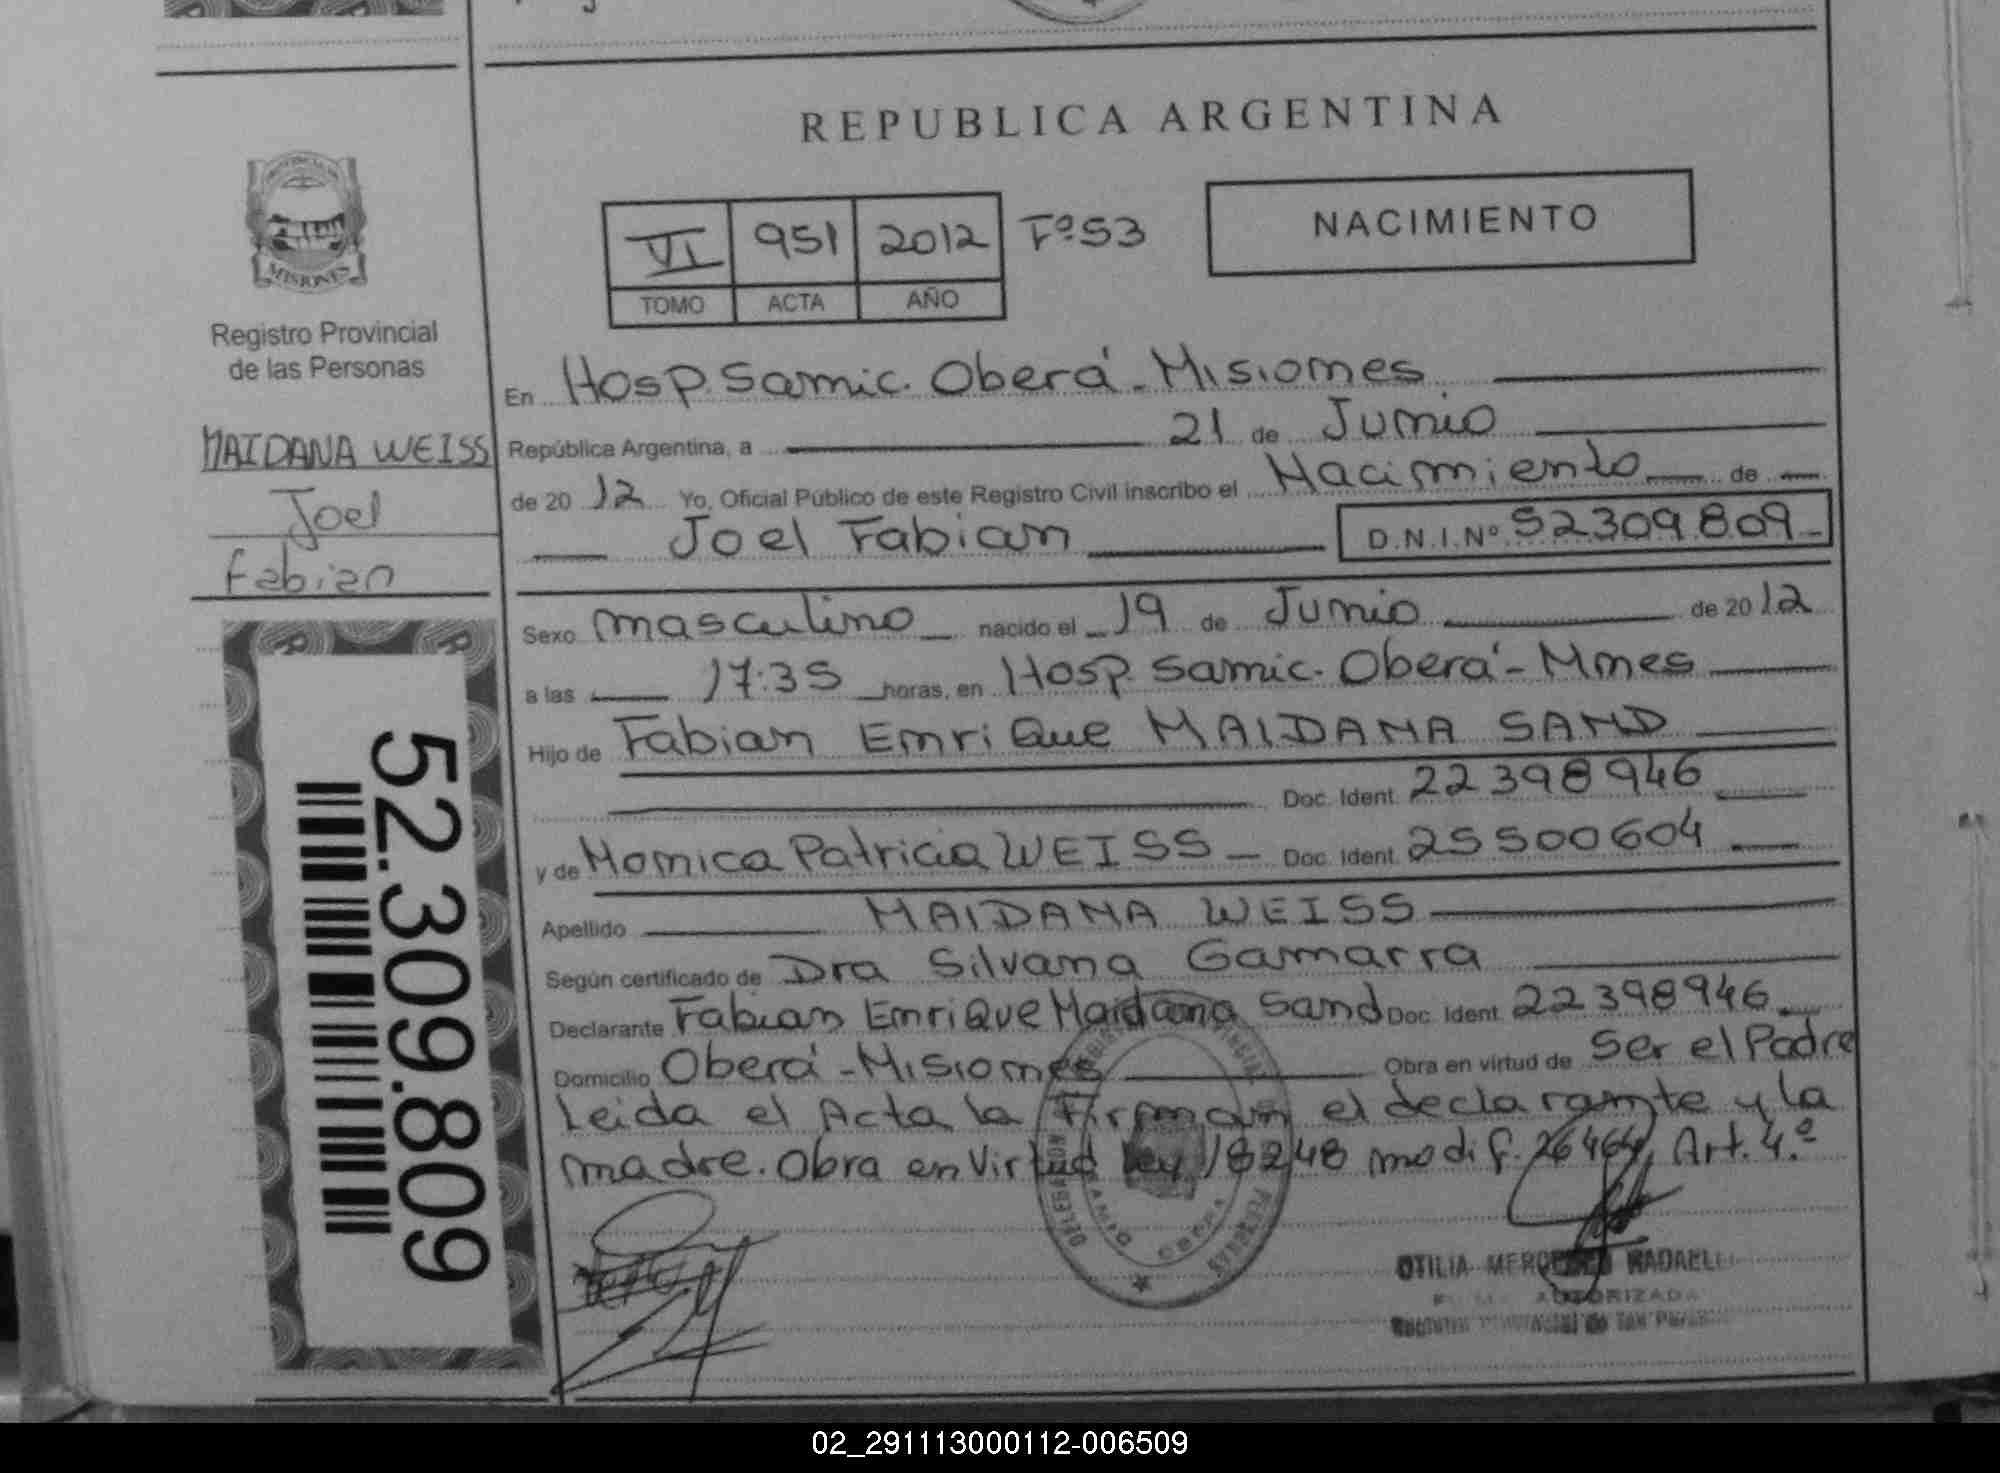 REPUBLICA ARGENTINA
MISIONES
Registro Provincial
de las Personas
MAIDANA WEISS
Joel
Fabian
52.309.809
VI 951 2012 Fº53
TOMO ACTA AÑO
NACIMIENTO
En Hosp. Samic. Oberá - Misiones
República Argentina, a 21 de Junio
de 2012 Yo, Oficial Público de este Registro Civil inscribo el Nacimiento de
Joel Fabian D.N.I.Nº 52309.809
Sexo masculino nacido el 19 de Junio de 2012
a las 17:35 horas, en Hosp. Samic. Oberá - Mnes
Hijo de Fabian Enrique MAIDANA SAND
Doc. Ident. 22 398 946
y de Monica Patricia WEISS Doc. Ident. 25500604
Apellido MAIDANA WEISS
Según certificado de Dra Silvana Gamarra
Declarante Fabian Enrique Maidana Sand Doc. Ident. 22 398946
Domicilio Oberá - Misiones Obra en virtud de Ser el Padre
Leida el Acta la Firman el declarante y la
madre. Obra en Virtud Ley 18248 modif. 26464 Art. 4.º
OTILIA MERCEDES RADAELLI
AUTORIZADA
02_291113000112-006509